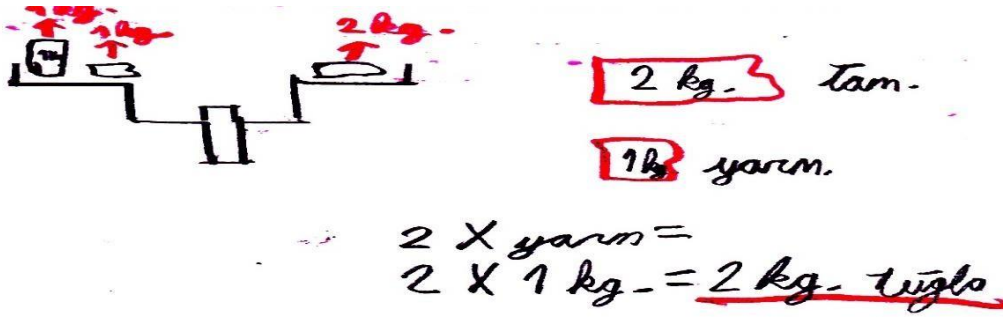 1 kg.
1 kg.
2 kg.
2 kg. tam.
1 kg yarım.
2 X yarım =
2 X 1 kg. = 2 kg. tuğla